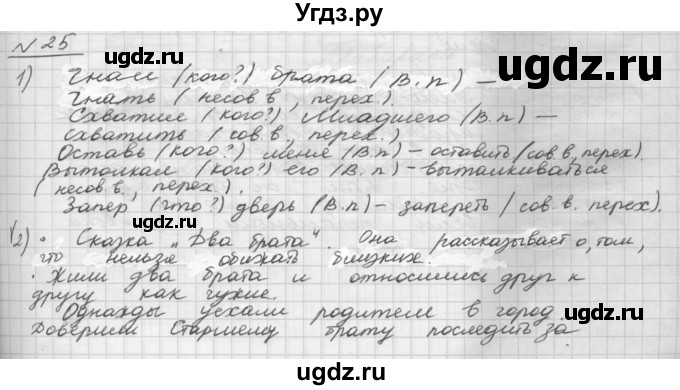 Угдз.ру
N 25
1) Гнал (кого?) брата (В.п) –
Гнать (несов в, перех.).
Схватил (кого?) Младшего (В.п) –
схватить (сов в, перех.)
Оставь (кого?) меня (В.п) – оставить (сов в, перех).
Вытолкал (кого?) его (В.п) – выталкиваться
(несов в, перех.).
Запер (что?) дверь (В.п) – запереть (сов. в. перех).
2) · Сказка "Два брата". Она рассказывает о, том,
что нельзя обижать близких.
· Жили два брата и относились друг к
другу как чужие.
Однажды уехали родители в город.
Доверили Старшему брату последить за
ugdz.ru
ugdz.ru
ugdz.ru
ugdz.ru
ugdz.ru
ugdz.ru
ugdz.ru
ugdz.ru
ugdz.ru